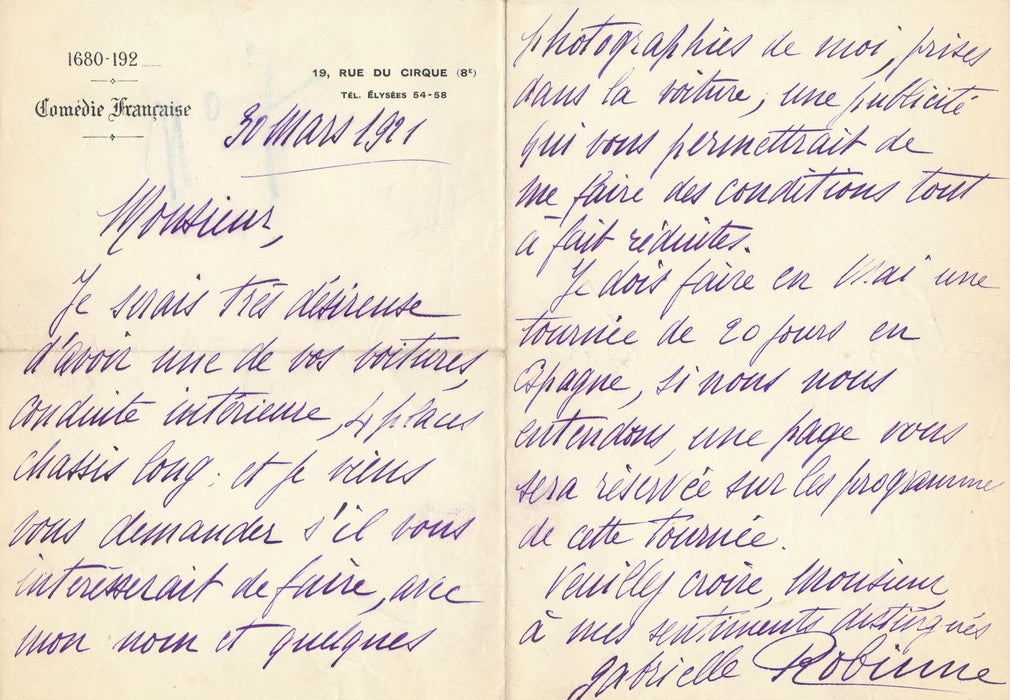 1680-192
Comédie Française
19, RUE DU CIRQUE (8ᴱ)
TÉL. ÉLYSÉES 54-58
30 Mars 1921
Monsieur,
Je serais très désireuse
d'avoir une de vos voitures,
conduite intérieure, 4 places
chassis long. et je viens
vous demander s'il vous
intéresserait de faire, avec
mon nom et quelques
photographies de moi, prises
dans la voiture, une publicité
qui vous permettrait de
me faire des conditions tout
à fait réduites.
Je dois faire en Mai une
tournée de 20 jours en
Espagne, si nous nous
entendons, une page vous
sera réservée sur les programmes
de cette tournée.
Veuillez croire, Monsieur,
à mes sentiments distingués
Gabrielle Robinne